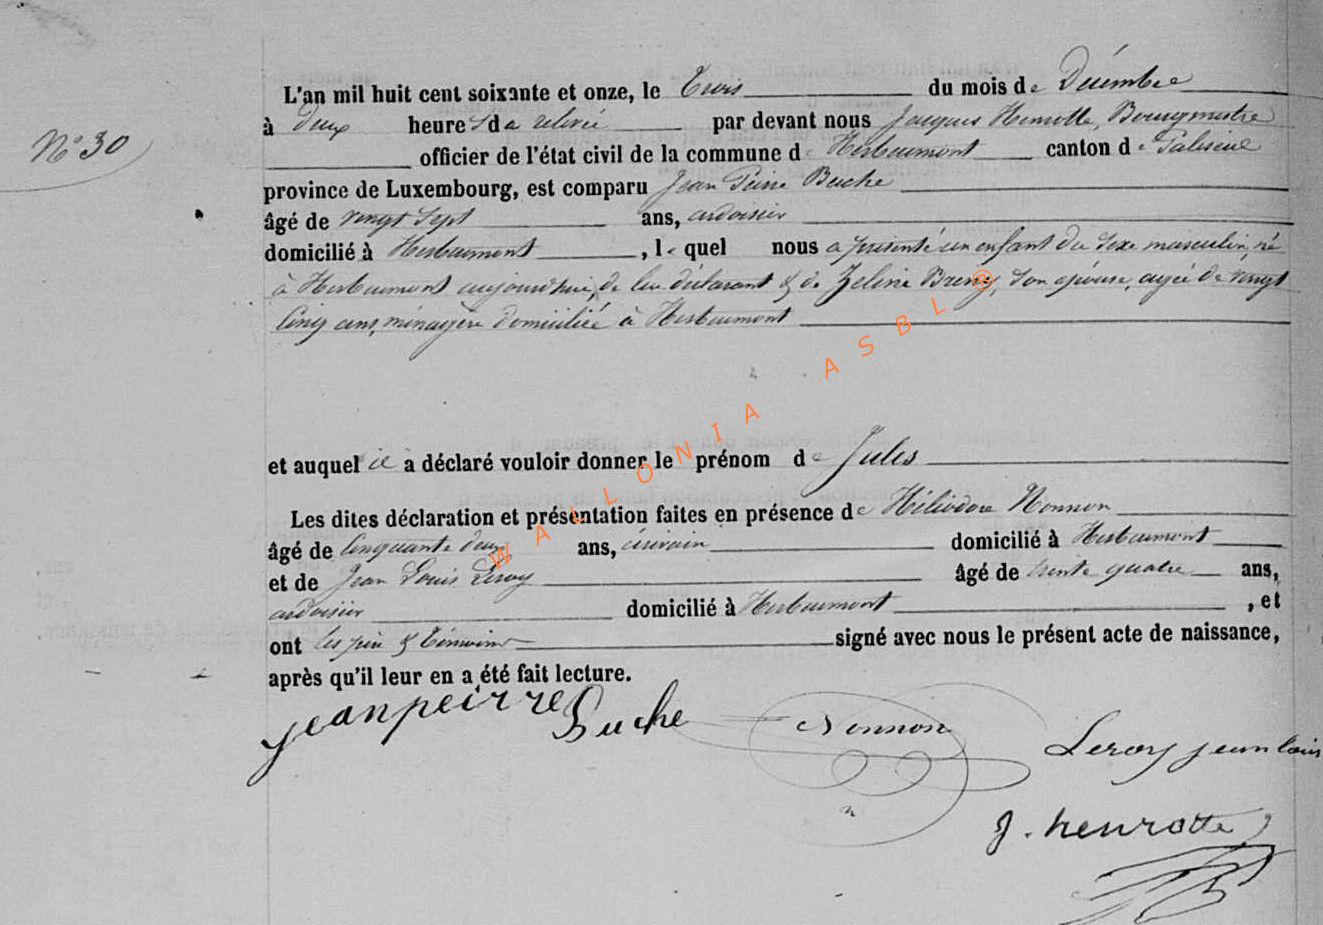 N° 30
L'an mil huit cent soixante et onze, le Trois du mois de Décembre
à deux heures de relevée par devant nous Jacques Henrotte, Bourgmestre
officier de l'état civil de la commune de Herbeumont canton de Paliseul
province de Luxembourg, est comparu Jean Peirre Buche
âgé de vingt sept ans, ardoisier
domicilié à Herbeumont, lequel nous a présenté un enfant du sexe masculin, né
à Herbeumont aujourd'hui, de lui déclarant & de Zeline Breny, son épouse, agée de vingt
cinq ans, ménagère domiciliée à Herbeumont
et auquel il a déclaré vouloir donner le prénom de Jules
Les dites déclaration et présentation faites en présence de Héliodore Nonnon
âgé de cinquante deux ans, écrivain domicilié à Herbeumont
et de Jean Louis Leroy âgé de trente quatre ans,
ardoisier domicilié à Herbeumont, et
ont les père & témoins signé avec nous le présent acte de naissance,
après qu'il leur en a été fait lecture.
jeanpeirre Buche Nonnon Leroy jean louis
J. henrotte
WALLONIA ASBL ®